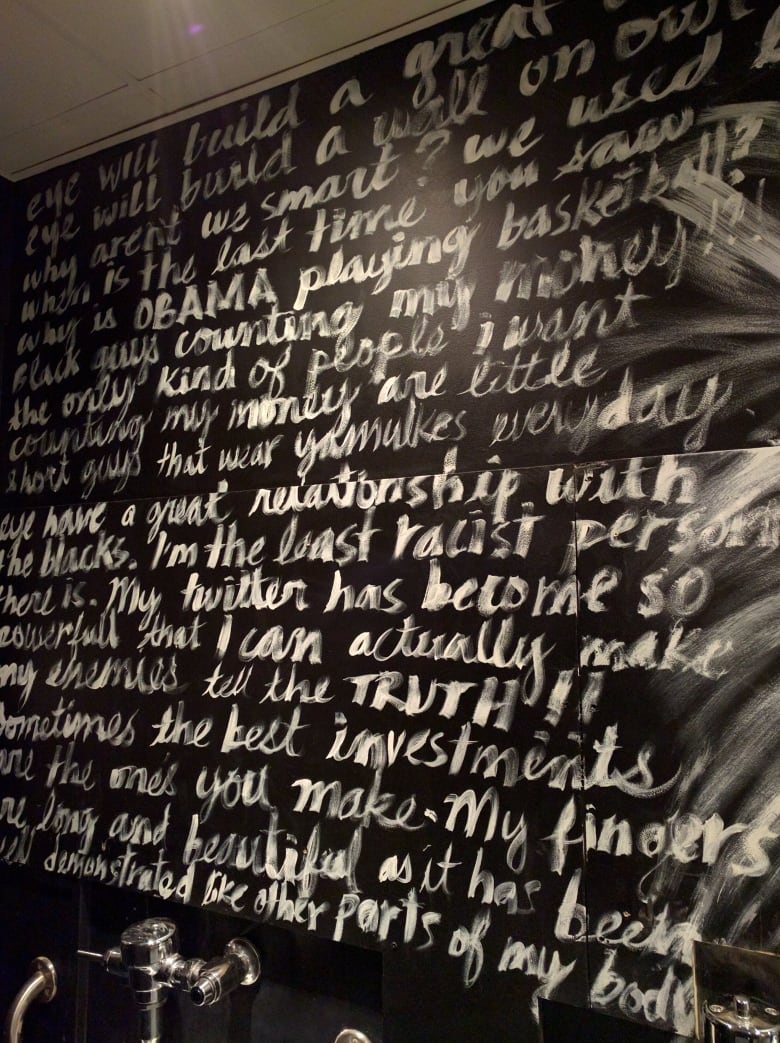 eye will build a great
eye will build a wall on our
why aren't we smart? we used
when is the last time you saw
why is OBAMA playing basketball?
Black guys counting my money!!?!
the only kind of people i want
counting my money are little
short guys that wear yamulkes everyday
eye have a great relationship with
the blacks. I'm the least racist person
there is. My twitter has become so
powerfull that I can actually make
my enemies tell the TRUTH!!
Sometimes the best investments
are the ones you make. My fingers
re long and beautiful as it has been
well demonstrated like other parts of my body